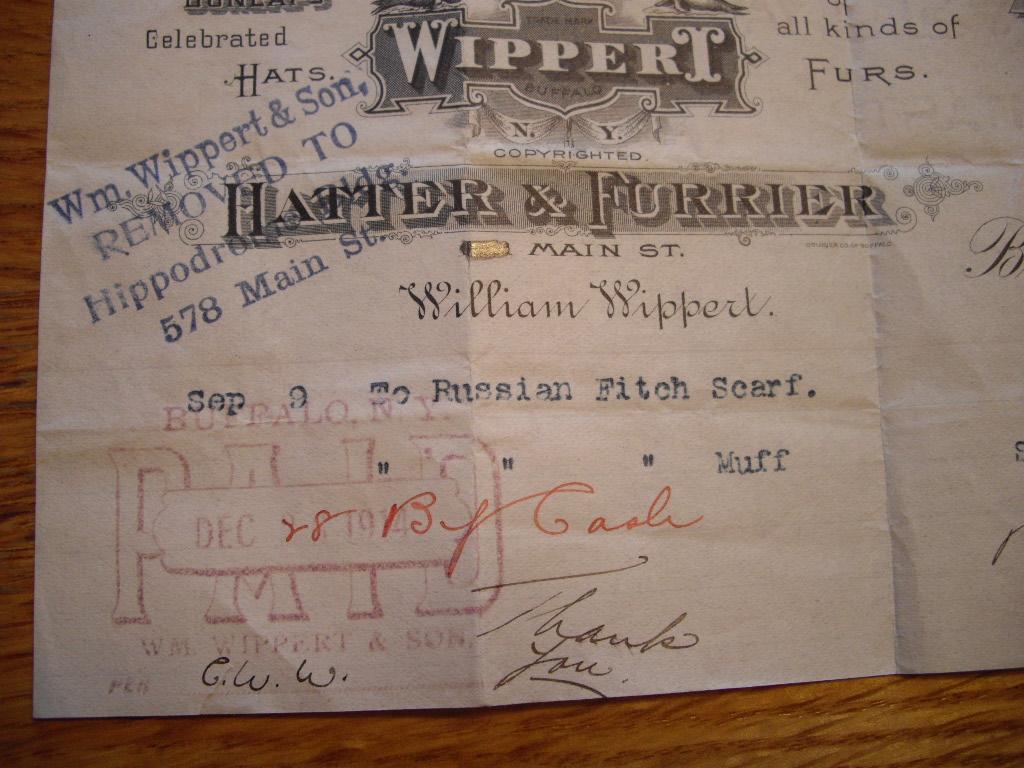 DUNLAP'S
Celebrated
HATS.
TRADE MARK
WIPPERT
BUFFALO
N. Y.
COPYRIGHTED.
of
all kinds of
FURS.
Wm. Wippert & Son,
REMOVED TO
Hippodrome Bldg.
578 Main St.
HATTER & FURRIER
MAIN ST.
William Wippert.
Sep 9 To Russian Fitch Scarf.
" " " Muff
28 By Cash
BUFFALO, N.Y.
PAID
DEC 1914
WM. WIPPERT & SON,
PER C.W.W.
Thank
You